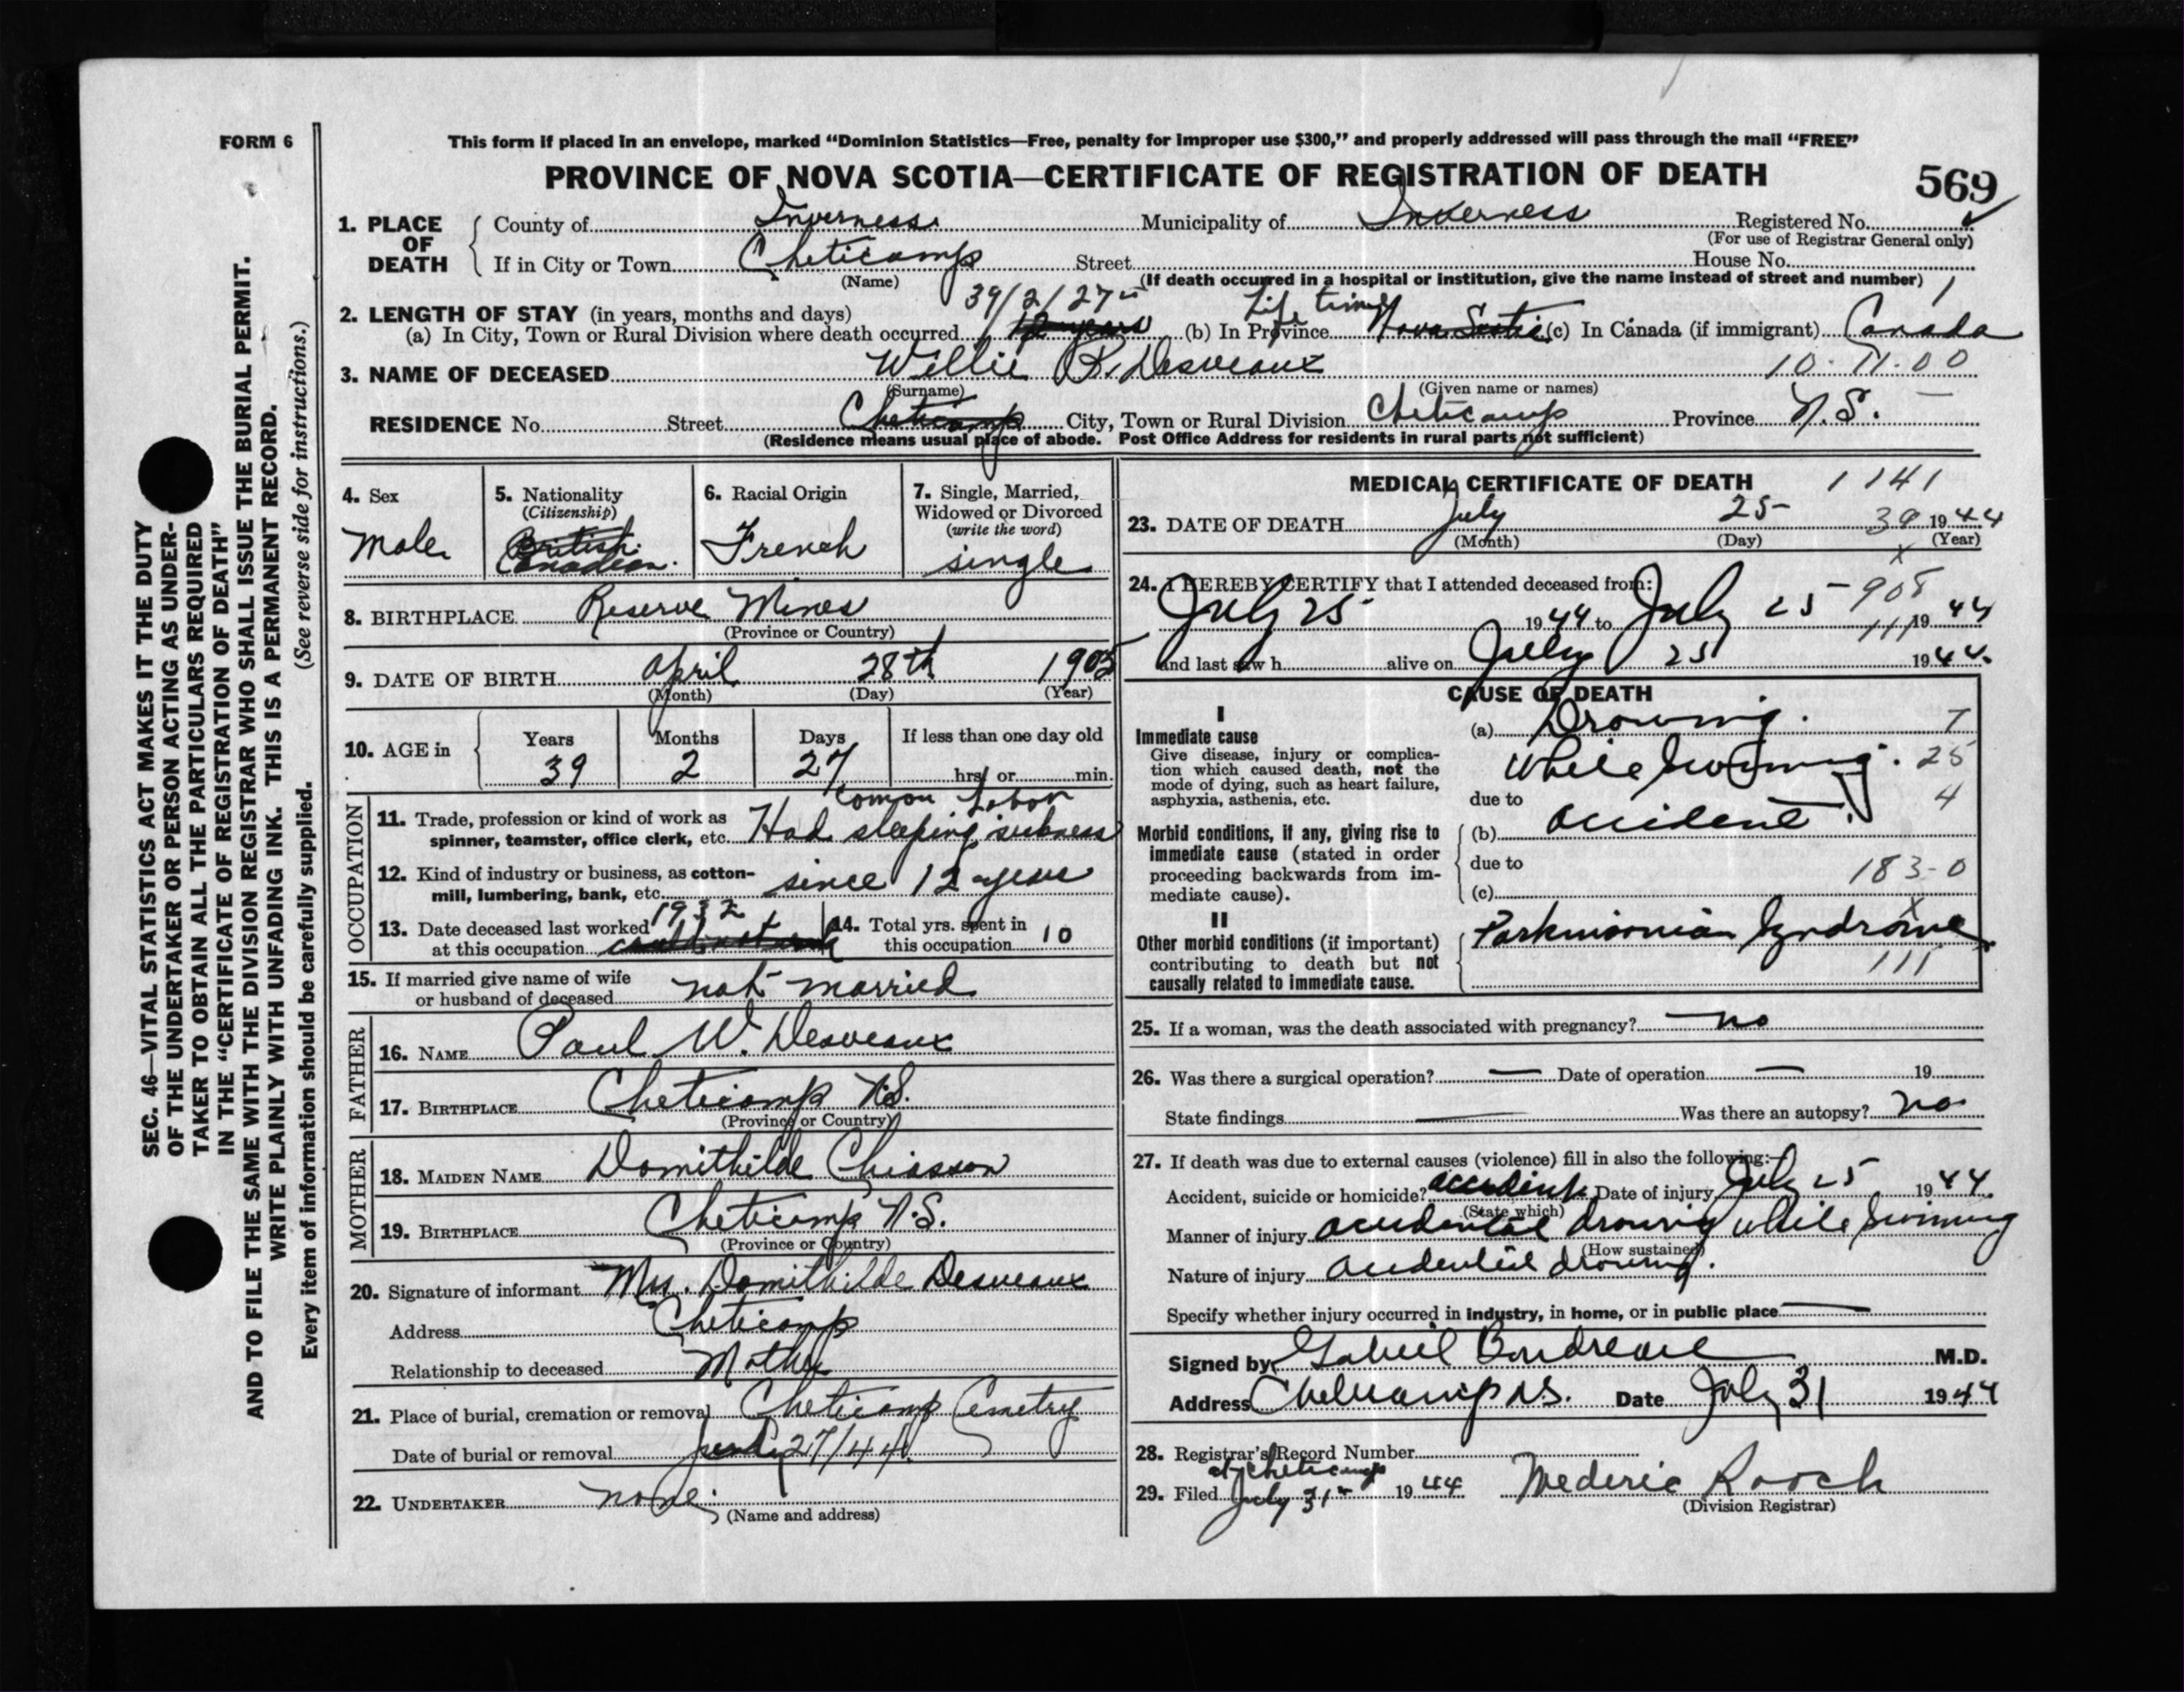 FORM 6
This form if placed in an envelope, marked “Dominion Statistics—Free, penalty for improper use $300,” and properly addressed will pass through the mail “FREE”
PROVINCE OF NOVA SCOTIA—CERTIFICATE OF REGISTRATION OF DEATH
569
1. PLACE OF DEATH { County of Inverness Municipality of Inverness Registered No.
(For use of Registrar General only)
If in City or Town Cheticamp Street House No.
(Name) (If death occurred in a hospital or institution, give the name instead of street and number)
39/2/27 Life time
2. LENGTH OF STAY (in years, months and days)
(a) In City, Town or Rural Division where death occurred 12 years (b) In Province Nova Scotia (c) In Canada (if immigrant) Canada
3. NAME OF DECEASED Willie P. Desveaux 10·11·00
(Surname) (Given name or names)
RESIDENCE No. Street Cheticamp City, Town or Rural Division Cheticamp Province N.S.
(Residence means usual place of abode. Post Office Address for residents in rural parts not sufficient)
4. Sex
Male
5. Nationality
(Citizenship)
British
Canadian.
6. Racial Origin
French
7. Single, Married, Widowed or Divorced
(write the word)
single
8. BIRTHPLACE Reserve Mines
(Province or Country)
9. DATE OF BIRTH April 28th 1905
(Month) (Day) (Year)
10. AGE in { Years Months Days If less than one day old
39 2 27 hrs. or min.
OCCUPATION
Comon Labor
11. Trade, profession or kind of work as
spinner, teamster, office clerk, etc. Had sleeping sickness
12. Kind of industry or business, as cotton-
mill, lumbering, bank, etc. since 12 years
13. Date deceased last worked 1932
at this occupation
14. Total yrs. spent in
this occupation 10
15. If married give name of wife
or husband of deceased not married
FATHER
16. NAME Paul W. Desveaux
17. BIRTHPLACE Cheticamp N.S.
(Province or Country)
MOTHER
18. MAIDEN NAME Domithilde Chiasson
19. BIRTHPLACE Cheticamp N.S.
(Province or Country)
20. Signature of informant Mrs. Domithilde Desveaux
Address Cheticamp
Relationship to deceased Mother
21. Place of burial, cremation or removal Cheticamp Cemetry
Date of burial or removal July 27/44
22. UNDERTAKER none
(Name and address)
MEDICAL CERTIFICATE OF DEATH 1141
23. DATE OF DEATH July 25 39 1944
(Month) (Day) (Year)
24. I HEREBY CERTIFY that I attended deceased from: 908
July 25 1944 to July 25 1944
111
and last saw h alive on July 25 1944.
CAUSE OF DEATH
I
Immediate cause
Give disease, injury or complica-
tion which caused death, not the
mode of dying, such as heart failure,
asphyxia, asthenia, etc.
(a) Drowing. 7
while swiming. 25
due to 4
Morbid conditions, if any, giving rise to
immediate cause (stated in order
proceeding backwards from im-
mediate cause).
(b) accident.
due to
183-0
(c)
II
Other morbid conditions (if important)
contributing to death but not
causally related to immediate cause.
Parkinsonian Syndrome.
111
25. If a woman, was the death associated with pregnancy? no
26. Was there a surgical operation? — Date of operation — 19
State findings — Was there an autopsy? no
27. If death was due to external causes (violence) fill in also the following:—
Accident, suicide or homicide? accident Date of injury July 25 1944.
(State which)
Manner of injury accidental drowing while swiming
(How sustained)
Nature of injury accidental drowing.
Specify whether injury occurred in industry, in home, or in public place —
Signed by Gabriel Boudreau M.D.
Address Cheticamp NS. Date July 31 1944
28. Registrar's Record Number
at Cheticamp
29. Filed July 31st 1944 Mederic Roach
(Division Registrar)
SEC. 46—VITAL STATISTICS ACT MAKES IT THE DUTY
OF THE UNDERTAKER OR PERSON ACTING AS UNDER-
TAKER TO OBTAIN ALL THE PARTICULARS REQUIRED
IN THE “CERTIFICATE OF REGISTRATION OF DEATH”
AND TO FILE THE SAME WITH THE DIVISION REGISTRAR WHO SHALL ISSUE THE BURIAL PERMIT.
WRITE PLAINLY WITH UNFADING INK. THIS IS A PERMANENT RECORD.
Every item of information should be carefully supplied. (See reverse side for instructions.)